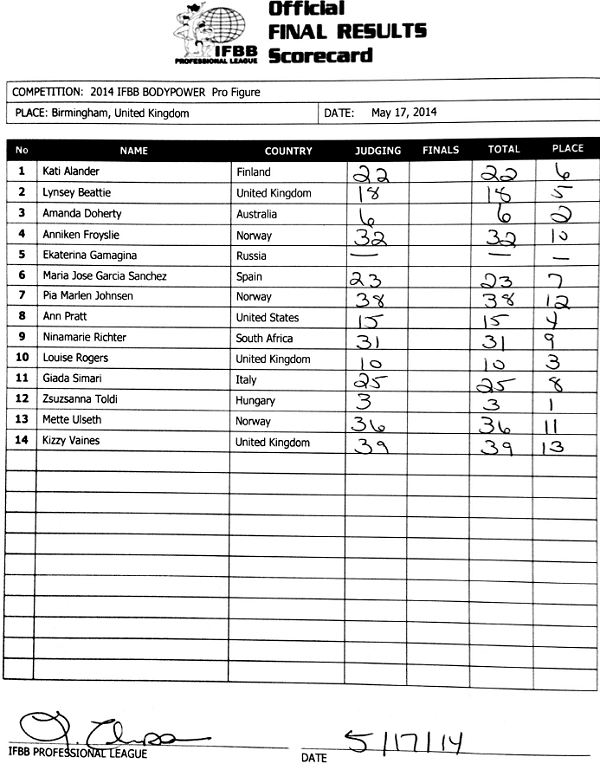 Official
FINAL RESULTS
Scorecard
IFBB
PROFESSIONAL LEAGUE
COMPETITION: 2014 IFBB BODYPOWER Pro Figure
PLACE: Birmingham, United Kingdom DATE: May 17, 2014
No NAME COUNTRY JUDGING FINALS TOTAL PLACE
1 Kati Alander Finland 22 22 6
2 Lynsey Beattie United Kingdom 18 18 5
3 Amanda Doherty Australia 6 6 2
4 Anniken Froyslie Norway 32 32 10
5 Ekaterina Gamagina Russia — — —
6 Maria Jose Garcia Sanchez Spain 23 23 7
7 Pia Marlen Johnsen Norway 38 38 12
8 Ann Pratt United States 15 15 4
9 Ninamarie Richter South Africa 31 31 9
10 Louise Rogers United Kingdom 10 10 3
11 Giada Simari Italy 25 25 8
12 Zsuzsanna Toldi Hungary 3 3 1
13 Mette Ulseth Norway 36 36 11
14 Kizzy Vaines United Kingdom 39 39 13
5/17/14
IFBB PROFESSIONAL LEAGUE DATE